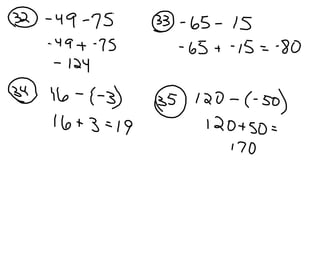 32 -49 -75
-49 + -75
-124
33 -65 - 15
-65 + -15 = -80
34 16 - (-3)
16 + 3 = 19
35 120 - (-50)
120+50 =
170